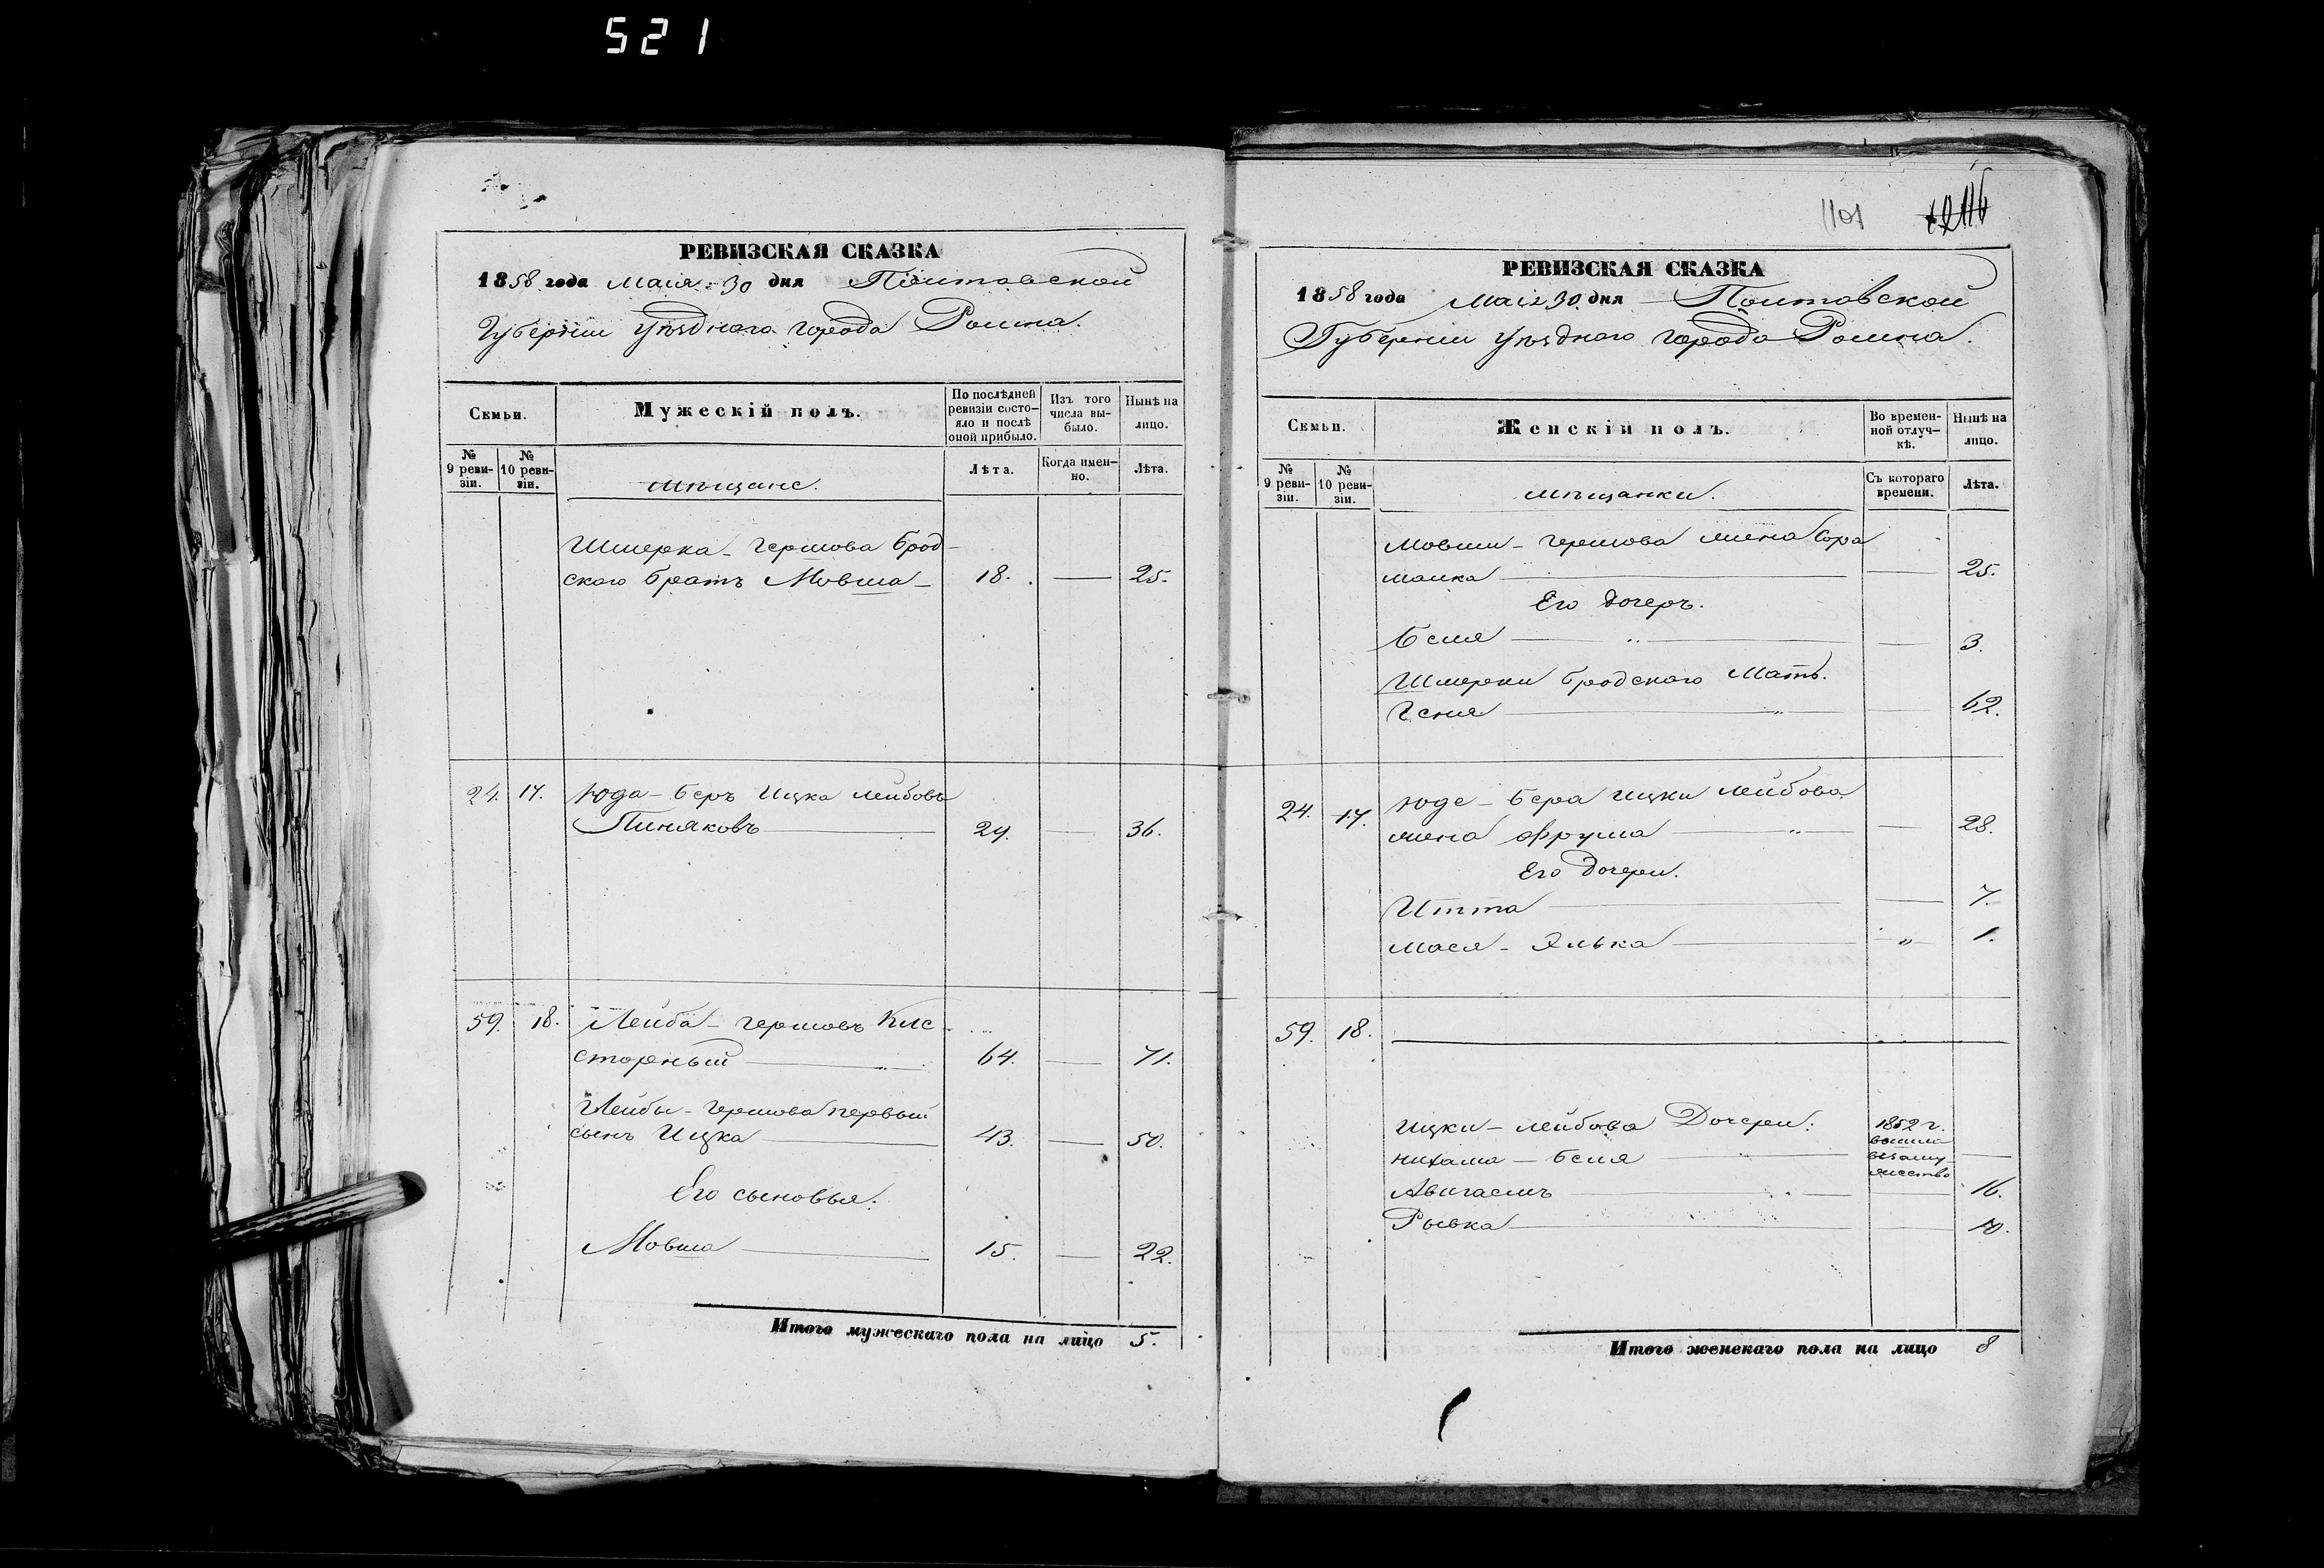 521
РЕВИЗСКАЯ СКАЗКА
1858 года Маія 30 дня Полтавской
Губерніи уѣзднаго города Ромна.
Семьи.
Мужескій полъ.
По послѣдней ревизіи состо-
яло и послѣ
оной прибыло.
Изъ того
числа вы-
было.
Нынѣ на
лицо.
№
9 реви-
зіи.
№
10 реви-
зіи.
мѣщане.
Лѣта.
Когда имен-
но.
Лѣта.
Шмерка - Гершова Брод-
скаго братъ Мовша - 18. — 25.
24. 17. Юда - Беръ Ицка Лейбовъ
Пиняковъ — 29. — 36.
59. 18. Лейба - Гершовъ Кис-
сторный — 64. — 71.
Лейбы - Гершова первый
сынъ Ицка — 43. — 50.
Его сыновья:
Мовша — 15. — 22.
Итого мужескаго пола на лицо 5.
1101
РЕВИЗСКАЯ СКАЗКА
1858 года Маія 30 дня Полтавской
Губерніи уѣзднаго города Ромна.
Семьи.
Женскій полъ.
Во времен-
ной отлуч-
кѣ.
Нынѣ на
лицо.
№
9 реви-
зіи.
№
10 реви-
зіи.
мѣщанки.
Съ котораго
времени.
Лѣта.
Мовши - Гершова жена Сора
малка — — 25.
Его дочеръ.
Беля — " — — 3.
Шмерки Бродскаго Мать.
Геня — " — — 62.
24. 17. Юде - Бера Ицки Лейбова
жена Фрума — " — 28.
Его дочери.
Итта — — 7.
Мася - Элька — " 1.
59. 18. —
Ицки - Лейбова Дочери:
Нихама - Беля — 1852 г.
вышла
въ заму-
жество —
Авигаель — — 16.
Рывка — — 10.
Итого женскаго пола на лицо 8